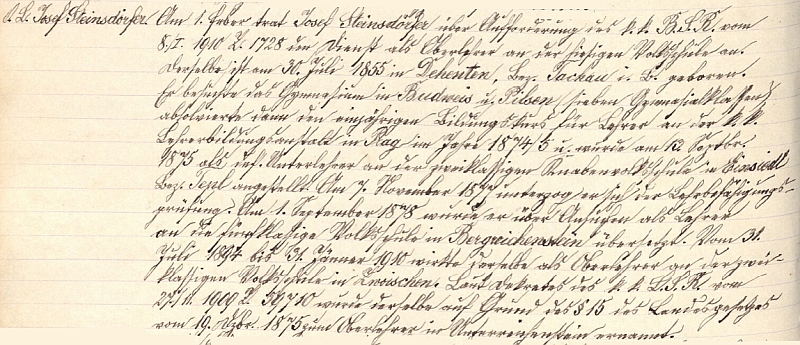 O. L. Josef Steinsdörfer. Am 1. Feber trat Josef Steinsdörfer über Aufforderung des k. k. B. S. R. vom
8./I. 1910 Z. 1728 den Dienst als Oberlehrer an der hiesigen Volksschule an.
Derselbe ist am 30. Juli 1855 in Dehenten, Bez. Tachau i. B. geboren.
Er besuchte das Gymnasium in Budweis u. Pilsen (sieben Gymnasialklassen)
absolvierte dann den einjährigen Bildungskurs für Lehrer an der k. k.
Lehrerbildungsanstalt in Prag im Jahre 1874/5 u. wurde am 12. Septbr.
1875 als def. Unterlehrer an der zweiklassigen Knabenvolksschule in Einsiedl
Bez. Tepl angestellt. Am 7. November 1877 unterzog er sich der Lehrbefähigungs-
prüfung. Am 1. September 1878 wurde er über Ansuchen als Lehrer
an die fünfklassige Volksschule in Bergreichenstein übersetzt. Vom 31.
Juli 1894 bis 31. Jänner 1910 wirkte derselbe als Oberlehrer an der zwei-
klassigen Volksschule in Zwoischen. Laut Dekretes des k. k. L. S. R. vom
1909 Z. 59710 wurde derselbe auf Grund des § 15 des Landesgesetzes
vom 19. Dzbr. 1875 zum Oberlehrer in Unterreichenstein ernannt.